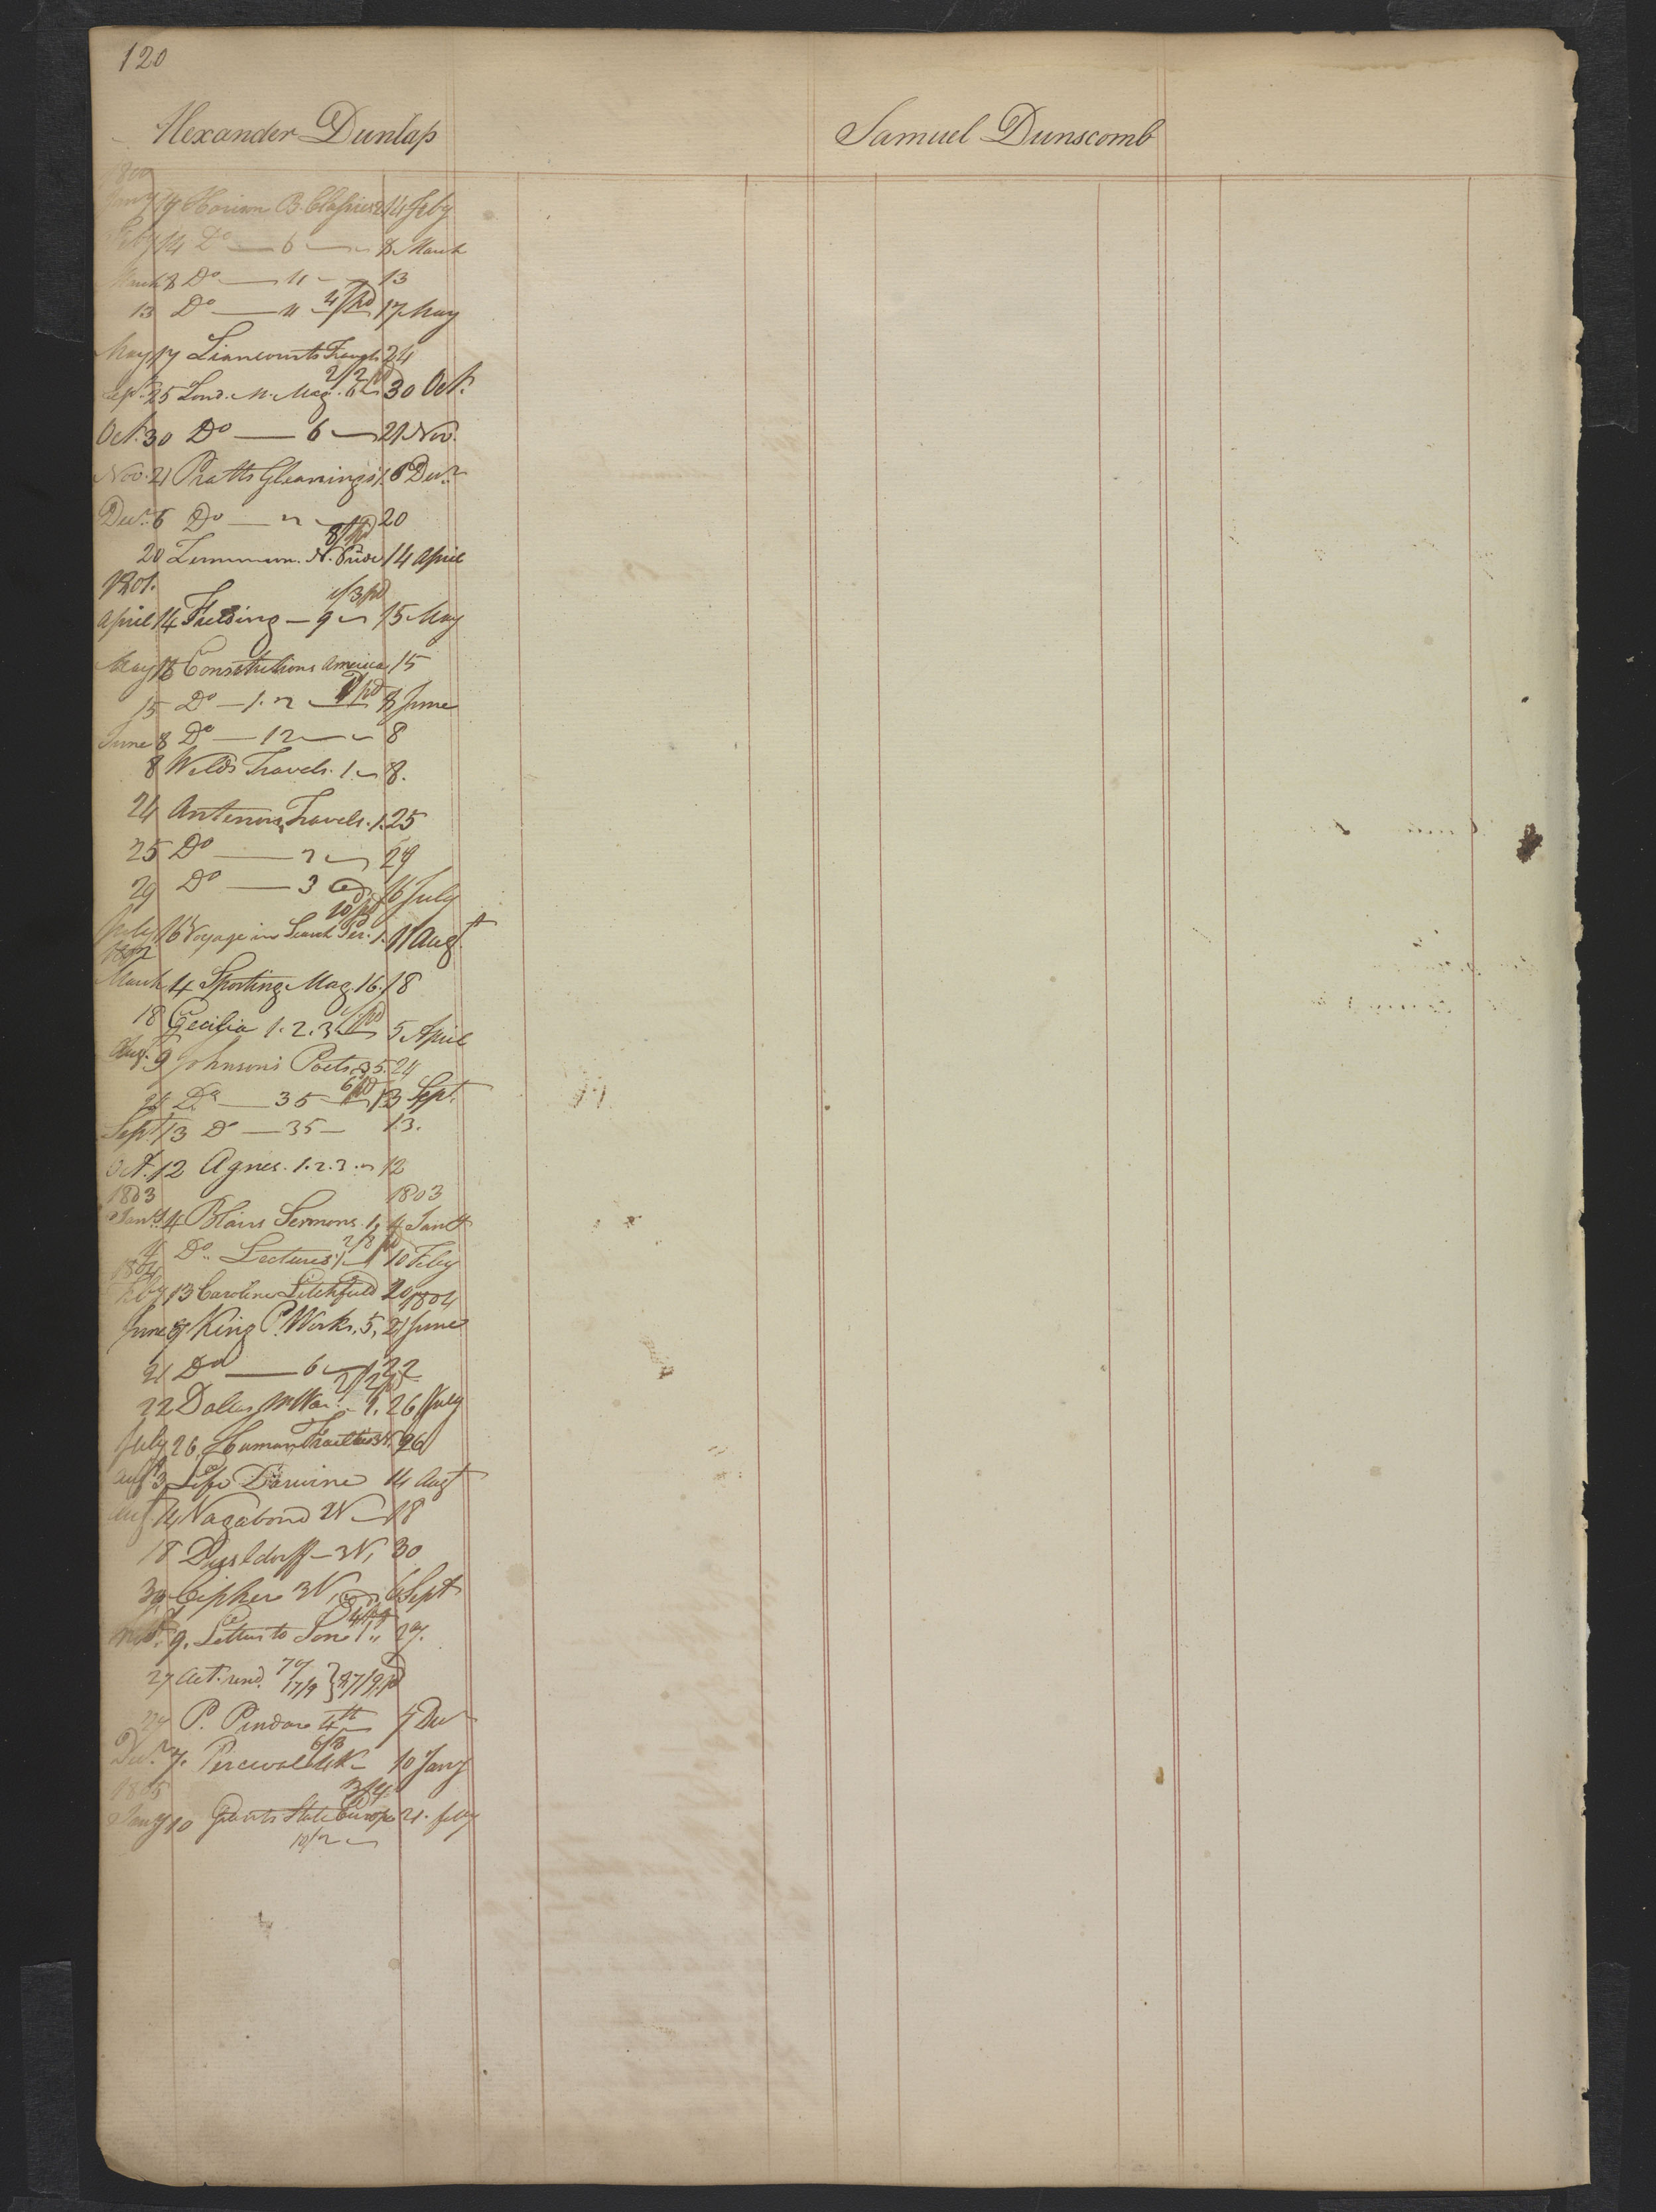 120
Alexander Dunlap
Samuel Dunscomb
1800
Jany 17 Harison B. Classics 2 14 Feby
Feby 14 Do — 6 — 8 March
March 8 Do — 11 — 13
13 Do — 11 4/ pd 17 May
May 17 Liancourts Travels 24
2/2 pd
Sept. 25 Lond. M. Mag. 6 30 Oct.
Oct. 30 Do — 6 — 21 Nov.
Nov. 21 Pratts Gleanings 1. 6 Decr.
Decr. 6 Do — 2 — 20
8/ pd
20 Zimmerm. N. Pride 14 April
1801.
1/3 pd
April 14 Fielding — 9 — 15 May
May 15 Constitutions America 15
15 Do — 1. 2 — pd 8 June
June 8 Do — 12 — 8
8 Welds Travels. 1. 8.
24 Antenors Travels. 1. 25
25 Do — 2 — 29
29 Do — 3 16 July
10/ pd
July 16 Voyage in Search Per. 1. 11 Augt
1802
March 4 Sporting Mag. 16. 18
18 Cecilia 1. 2. 3 pd 5 April
Aug. 9 Johnson's Poets 35. 24
24 Do — 35 6/ pd 13 Sept.
Sept. 13 Do — 35 — 13.
Oct. 12 Agnes. 1. 2. 3. 12
1803 1803
Jany. 4 Blairs Sermons. 1, 4 Jany
2/8 pd
4 Do.. Lectures 1 10 Feby
1804
Feby 13 Caroline Litchfield 20 1804
June 8 King P. Works. 5, 21 June
21 Do — 6 — 22
2/2 pd
22 Dallas M. Wor. 1. 26 July
July 26, Human Frailties 3V. 26
Augt 3 Life Darwine 14 Augt
Augt 14 Vagabond 2V — 18
18 Dusseldorff — 3V, 30
30 Cipher 3V, 6 Sept
9. Letters to Son 1,, 27.
27 Act. rend. 7/ 17/9 } 27/9 pd
27 P. Pindar 4th 7 Decr
6/8
Decr. 7. Percival 4V — 10 Jany
1805
3/4
Jany 10 Gentz State Europe 21. feby
10/2